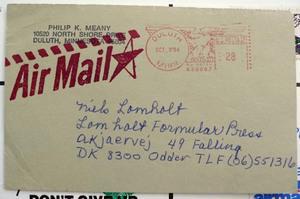 PHILIP K. MEANY
10520 NORTH SHORE DR.
DULUTH,
Air Mail
DULUTH
OCT
MINN
Niels Lomholt
Lomholt Formular Press
akjaervej 49 Falling
DK 8300 Odder TLF (06) 551316
DON'T GIVE UP